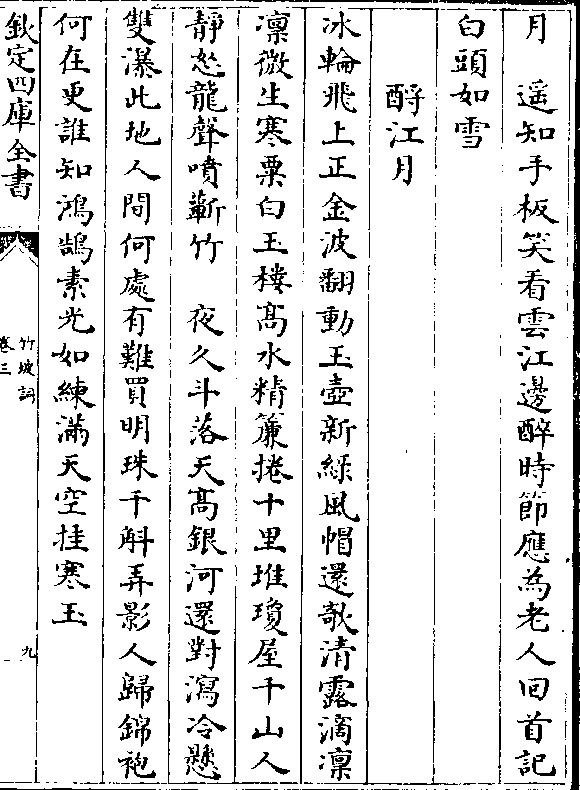 月　遥知手板笑看雲江邊醉時節應為老人回首記
白頭如雪
酹江月
冰輪飛上正金波翻動玉壺新綠風帽還欹清露滴凜
凜微生寒粟白玉樓高水精簾捲十里堆瓊屋千山人
靜怒龍聲噴蘄竹　夜久斗落天高銀河還對瀉冷懸
雙瀑此地人間何處有難買明珠千斛弄影人歸錦袍
何在更誰知鴻鵠素光如練滿天空挂寒玉
欽定四庫全書
竹坡詞
卷三
九